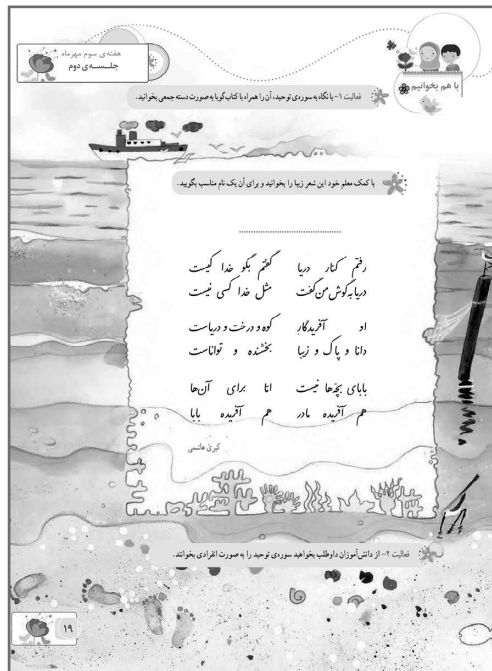 هفته‌ی سوم مهرماه
جلسه‌ی دوم
با هم بخوانیم
فعالیت ۱- با نگاه به سوره‌ی توحید، آن را همراه با کتاب گویا به صورت دسته جمعی بخوانید.
با کمک معلم خود این شعر زیبا را بخوانید و برای آن یک نام مناسب بگویید.
........................................
رفتم کنار دریا گفتم بگو خدا کیست
دریا به گوش من گفت مثل خدا کسی نیست
او آفریدگارِ کوه و درخت و دریاست
دانا و پاک و زیبا بخشنده و تواناست
بابای بچّه‌ها نیست امّا برای آن‌ها
هم آفریده مادر هم آفریده بابا
کبریٰ هاشمی
فعالیت ۲- از دانش‌آموزان داوطلب بخواهید سوره‌ی توحید را به صورت انفرادی بخوانند.
۱۹